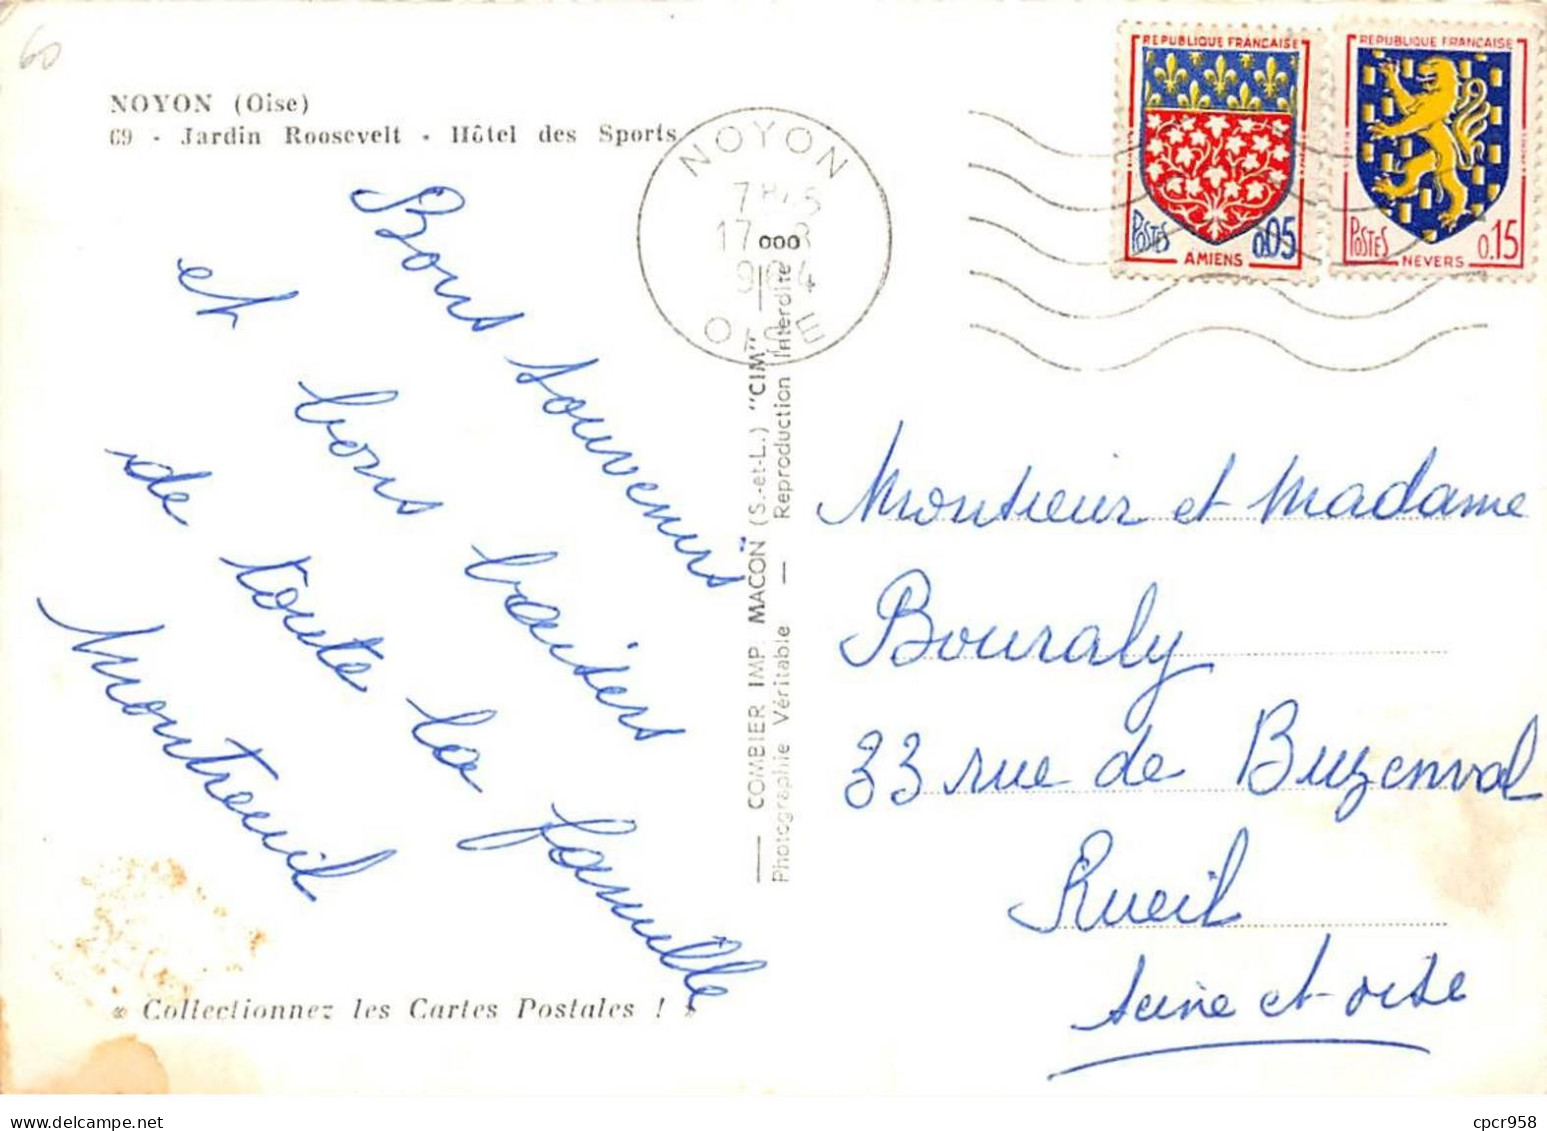 60
NOYON (Oise)
69 - Jardin Roosevelt - Hôtel des Sports
Bons souvenirs
et bons baisers
de toute la famille
Montreuil
« Collectionnez les Cartes Postales ! »
COMBIER IMP. MACON (S.-et-L.) "CIM"
Photographie Véritable — Reproduction Interdite
NOYON
OISE
REPUBLIQUE FRANÇAISE
POSTES 0.05
AMIENS
REPUBLIQUE FRANÇAISE
POSTES 0.15
NEVERS
Monsieur et Madame
Bouraly
33 rue de Buzenval
Rueil
Seine et oise
cpcr958